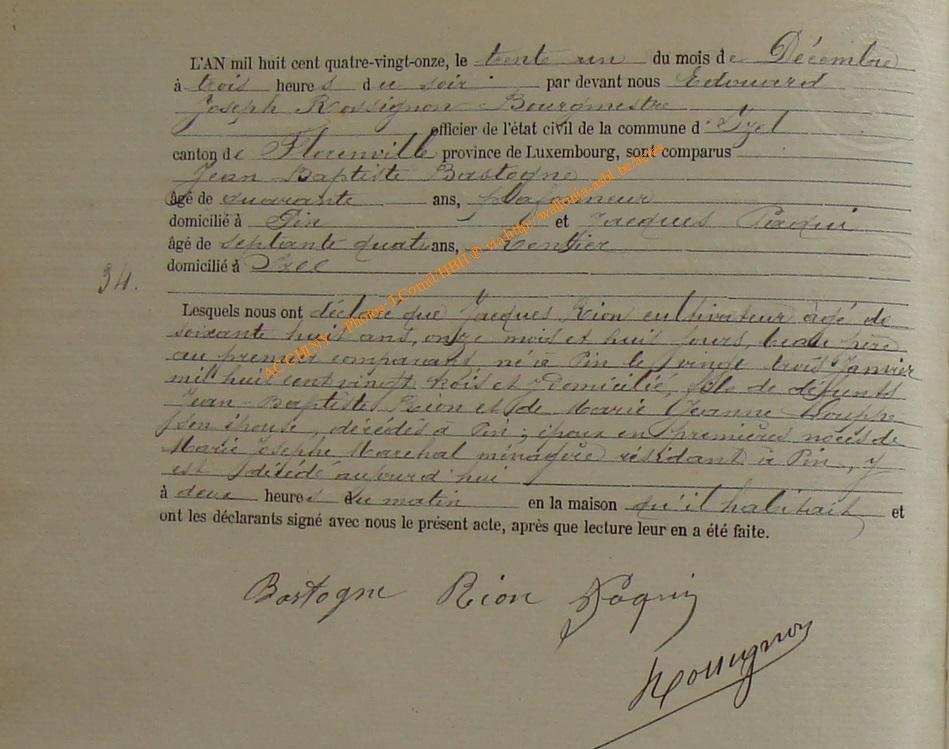 L'AN mil huit cent quatre-vingt-onze, le trente un du mois de Décembre
à trois heures du soir par devant nous Edouard
Joseph Rossignon Bourgmestre
officier de l'état civil de la commune d'Izel
canton de Florenville province de Luxembourg, sont comparus
Jean Baptiste Bastogne
âgé de quarante ans, plafonneur
domicilié à Pin et Jacques Paqui
âgé de septante quatre ans, Rentier
domicilié à Izel
34.
Lesquels nous ont déclaré que Jacques Rion cultivateur âgé de
soixante huit ans, onze mois et huit jours, beau père
au premier comparant, né à Pin le vingt trois Janvier
mil huit cent vingt trois et y domicilié, fils de défunts
Jean-Baptiste Rion et de Marie Jeanne
son épouse, décédés à Pin; époux en premières noces de
Marie Josephe Marechal ménagère résidant à Pin, y
est décédé aujourd'hui
à deux heures du matin en la maison qu'il habitait et
ont les déclarants signé avec nous le présent acte, après que lecture leur en a été faite.
Bastogne Rion Paquy
Rossignon
via http://wallonia-asbl.be/actes